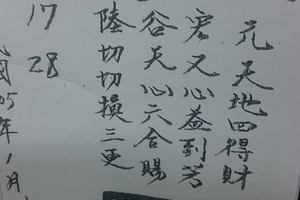 元天地四得財
宏又心益到若
谷天心六合賜
陸切切換三更
17 28
05年1月